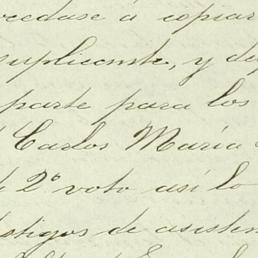 cedase á copiar
suplicante, y de
parte para los
Carlos María
2º voto así lo
stigos de asisten